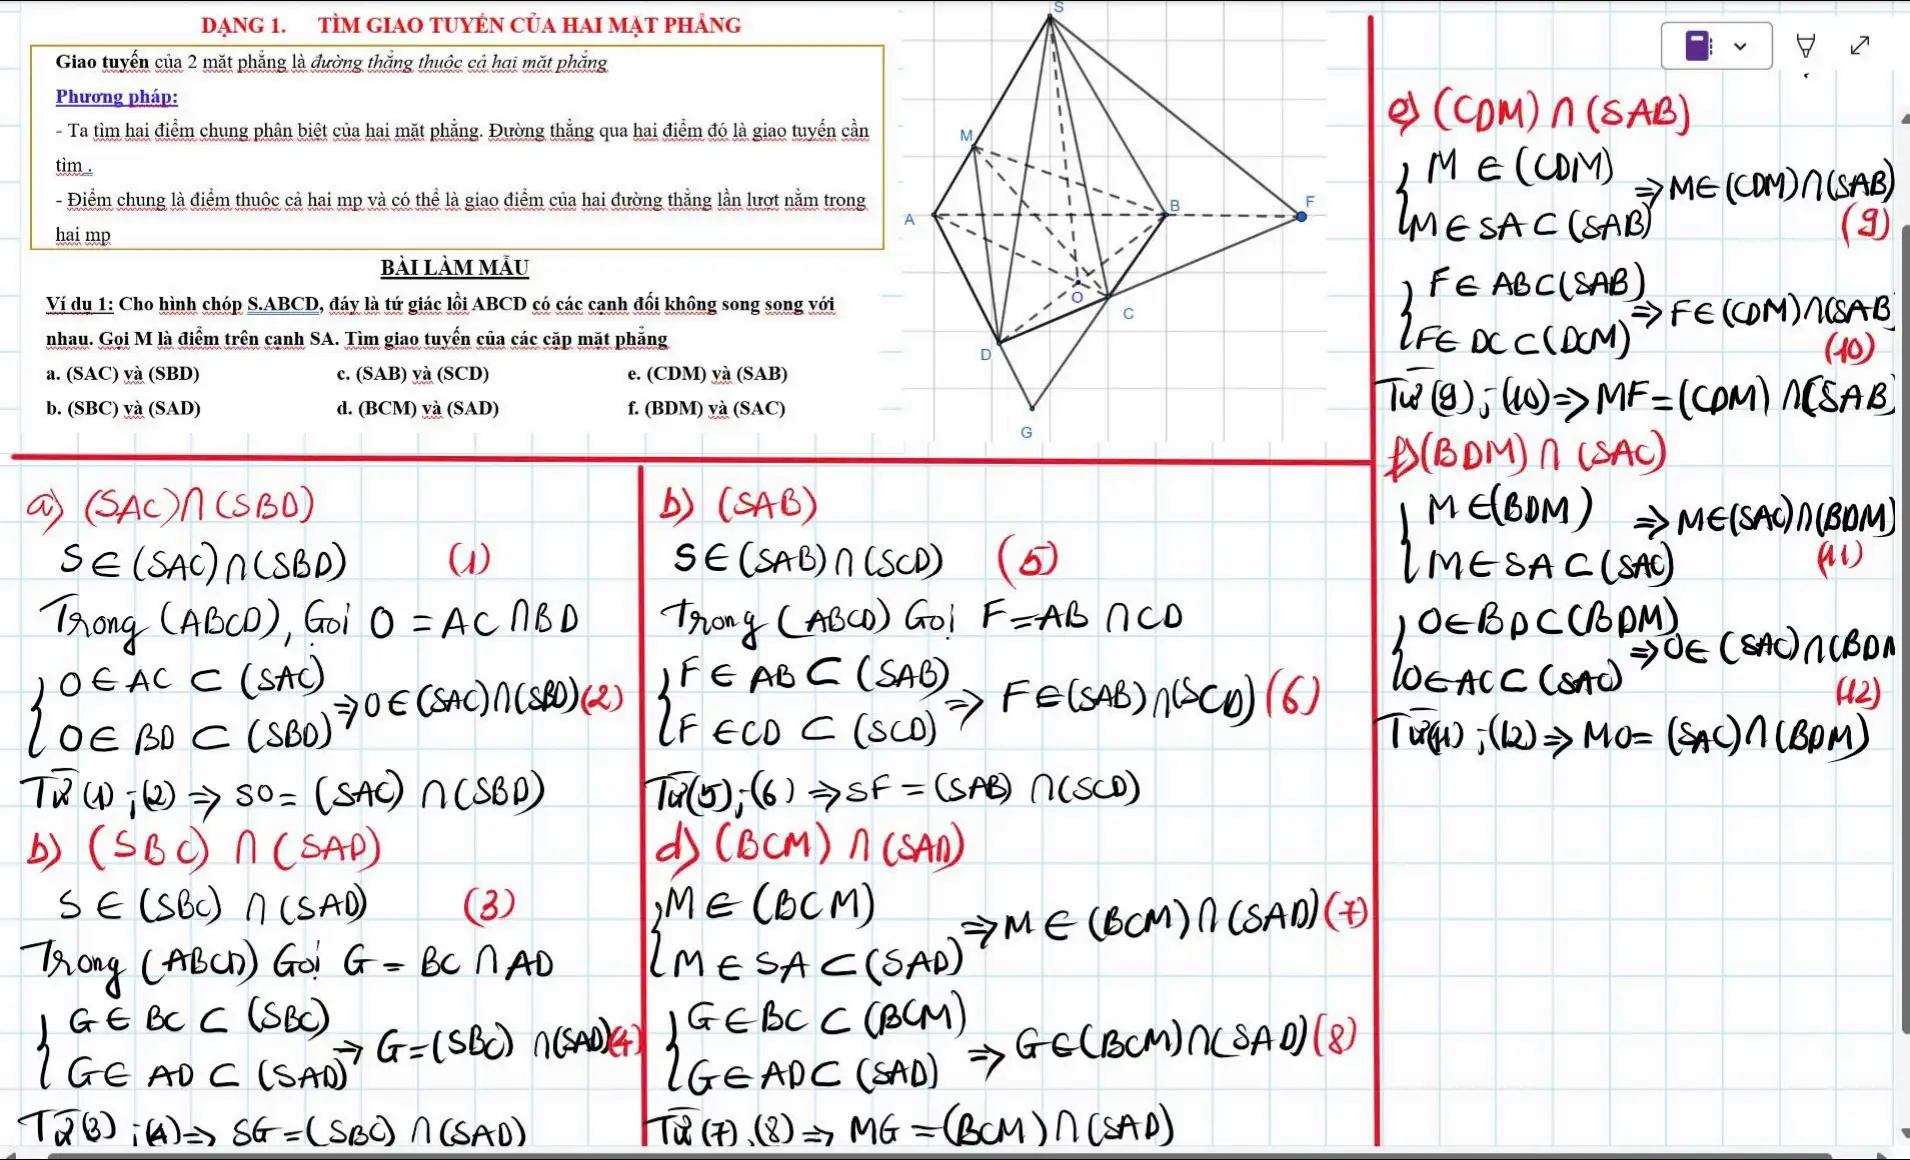 DẠNG 1. TÌM GIAO TUYẾN CỦA HAI MẶT PHẲNG
Giao tuyến của 2 mặt phẳng là đường thẳng thuộc cả hai mặt phẳng
Phương pháp:
- Ta tìm hai điểm chung phân biệt của hai mặt phẳng. Đường thẳng qua hai điểm đó là giao tuyến cần
tìm .
- Điểm chung là điểm thuộc cả hai mp và có thể là giao điểm của hai đường thẳng lần lượt nằm trong
hai mp
BÀI LÀM MẪU
Ví dụ 1: Cho hình chóp S.ABCD, đáy là tứ giác lồi ABCD có các cạnh đối không song song với
nhau. Gọi M là điểm trên cạnh SA. Tìm giao tuyến của các cặp mặt phẳng
a. (SAC) và (SBD) c. (SAB) và (SCD) e. (CDM) và (SAB)
b. (SBC) và (SAD) d. (BCM) và (SAD) f. (BDM) và (SAC)
S
M
A
B
F
O
C
D
G
a) (SAC)∩(SBD)
S∈(SAC)∩(SBD) (1)
Trong (ABCD), Gọi O = AC ∩BD
{ O∈AC ⊂ (SAC)
{ O∈ BD ⊂ (SBD)
⇒O∈(SAC)∩(SBD)(2)
Từ (1) ; (2) ⇒ SO= (SAC) ∩(SBD)
b) (SBC) ∩(SAD)
S ∈ (SBC) ∩(SAD) (3)
Trong (ABCD) Gọi G = BC ∩AD
{ G∈ BC ⊂ (SBC)
{ G∈ AD ⊂ (SAD)
⇒ G=(SBC) ∩(SAD)(4)
Từ (3) ; (4)⇒ SG=(SBC) ∩(SAD)
b) (SAB)
S∈(SAB)∩(SCD) (5)
Trong (ABCD) Gọi F=AB ∩CD
{ F∈ AB ⊂ (SAB)
{ F∈CD ⊂ (SCD)
⇒ F∈(SAB)∩(SCD)(6)
Từ(5);(6) ⇒SF=(SAB) ∩(SCD)
d) (BCM) ∩(SAD)
{ M∈ (BCM)
{ M∈ SA ⊂(SAD)
⇒M∈(BCM)∩(SAD)(7)
{ G∈BC ⊂ (BCM)
{ G∈AD⊂ (SAD)
⇒ G∈(BCM)∩(SAD)(8)
Từ (7),(8)⇒ MG=(BCM)∩(SAD)
e) (CDM)∩(SAB)
{ M∈(CDM)
{ M∈SA⊂(SAB)
⇒M∈(CDM)∩(SAB)
(9)
{ F∈ AB⊂(SAB)
{ F∈ DC⊂(DCM)
⇒F∈(CDM)∩(SAB
(10)
Từ (9);(10)⇒MF=(CDM)∩(SAB)
f)(BDM)∩(SAC)
{ M∈(BDM)
{ M∈SA⊂(SAC)
⇒M∈(SAC)∩(BDM)
(11)
{ O∈BD⊂(BDM)
{ O∈AC⊂(SAC)
⇒O∈(SAC)∩(BDM
(12)
Từ(11) ;(12)⇒ MO= (SAC)∩(BDM)